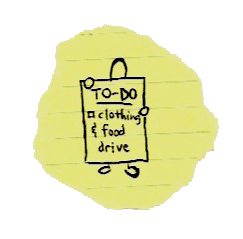 TO-DO
☐ clothing
& food
drive